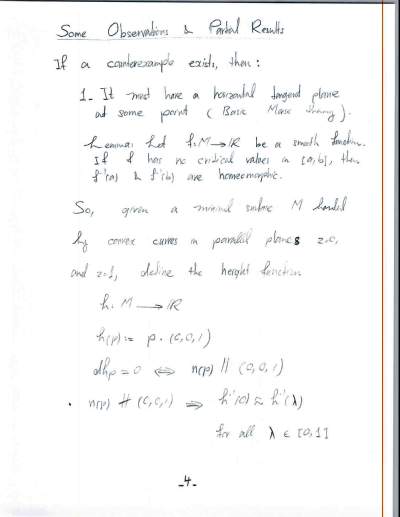 Some Observations & Partial Results
If a counterexample exists, then:
1- It must have a horizontal tangent plane
at some point (Basic Morse Theory).
Lemma: Let f: M → ℝ be a smooth function.
If f has no critical values in [a,b], then
f⁻¹(a) & f⁻¹(b) are homeomorphic.
So, given a minimal surface M bounded
by convex curves in parallel planes z=0,
and z=1, define the height function
h: M → ℝ
h(p) := p · (0,0,1)
dhp = 0 ⇔ n(p) // (0,0,1)
• n(p) ∦ (0,0,1) ⇒ h⁻¹(0) ≈ h⁻¹(λ)
for all λ ∈ [0,1]
-4-